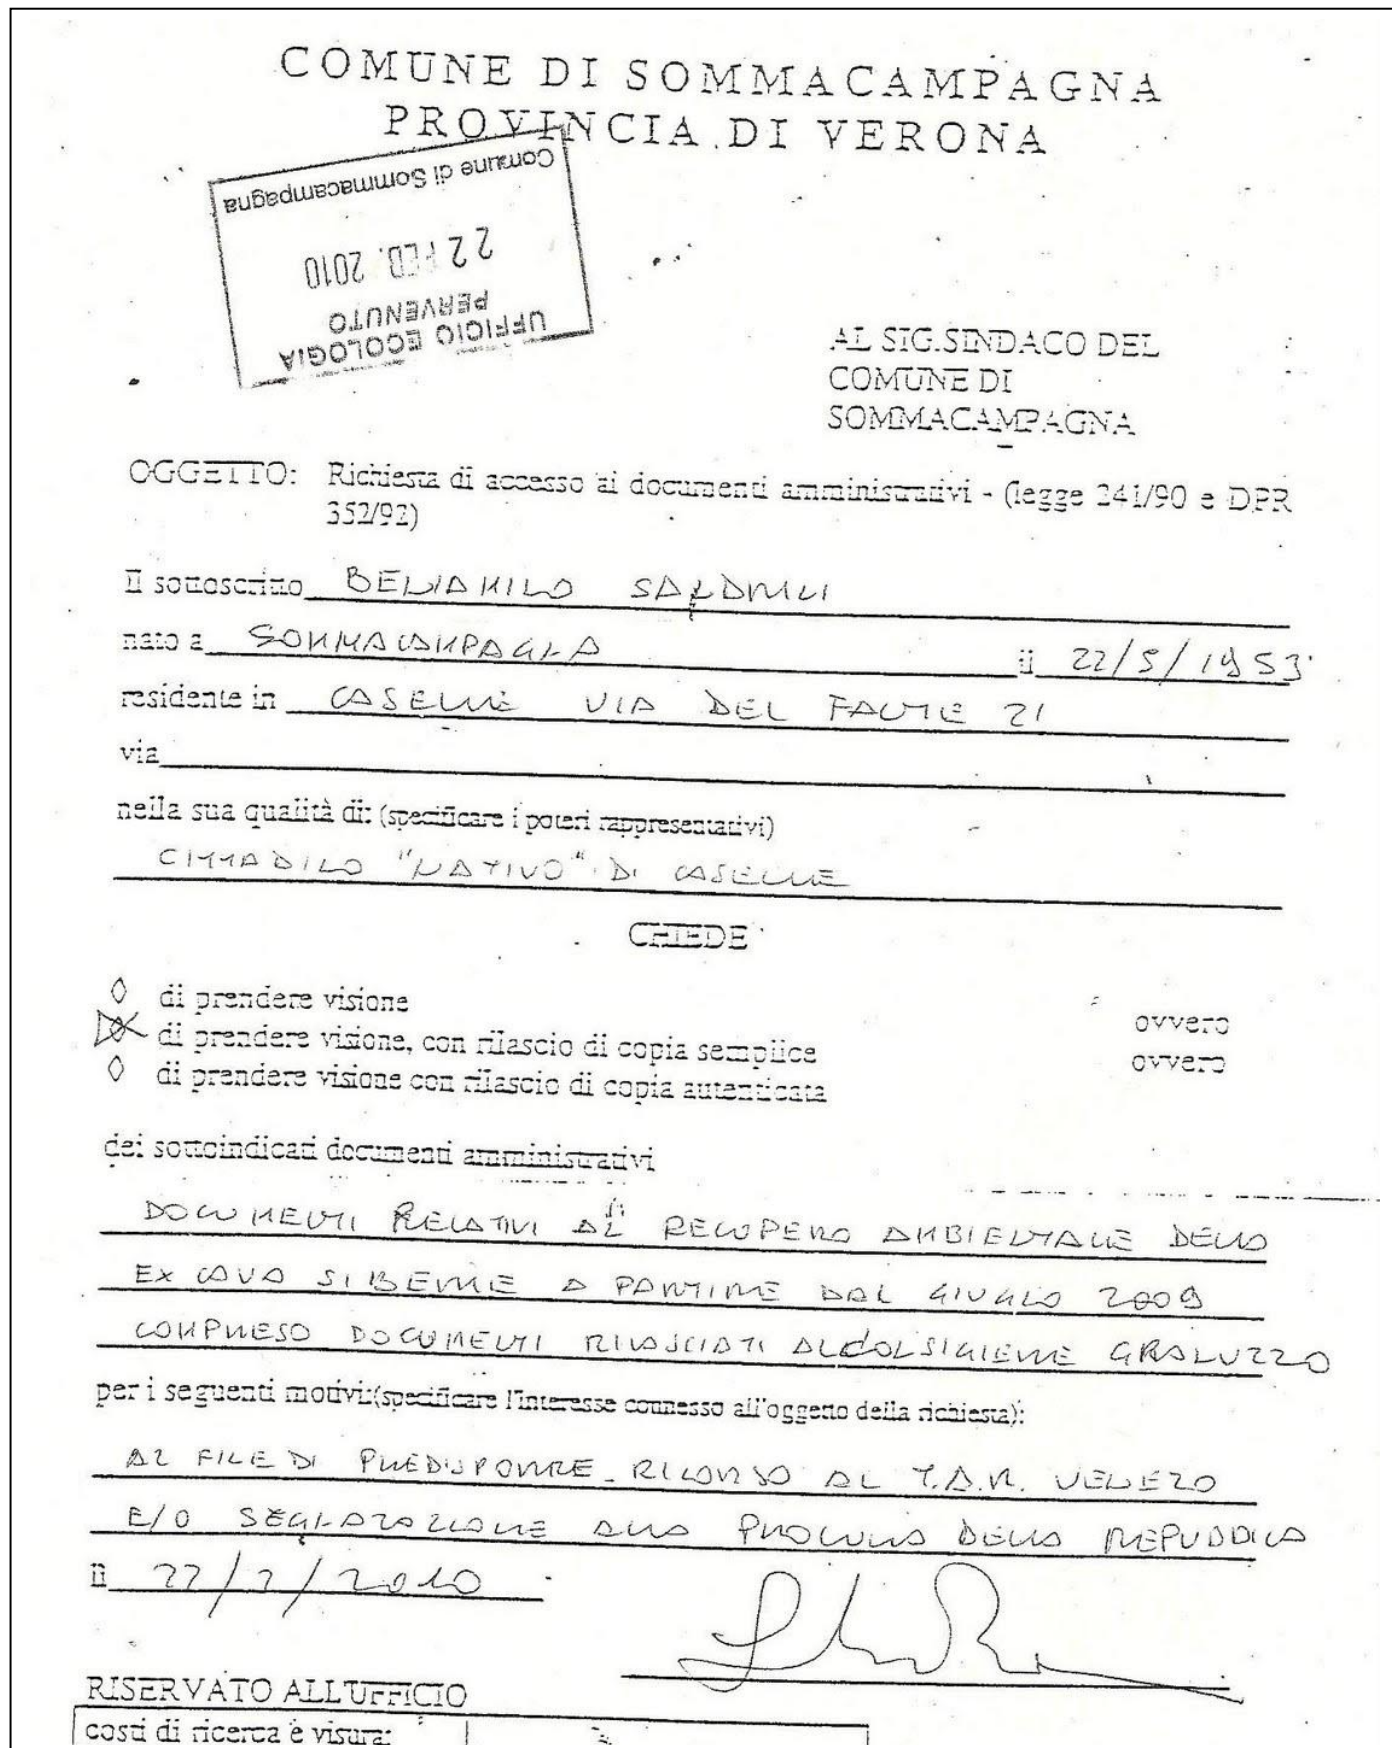 COMUNE DI SOMMACAMPAGNA
PROVINCIA DI VERONA
Comune di Sommacampagna
22 FEB. 2010
PERVENUTO
UFFICIO ECOLOGIA
AL SIG.SINDACO DEL
COMUNE DI
SOMMACAMPAGNA
OGGETTO: Richiesta di accesso ai documenti amministrativi - (legge 241/90 e DPR
352/92)
Il sottoscritto BENIAMINO
nato a SOMMACAMPAGNA il 22/5/1953
residente in CASELLE VIA DEL FANTE 21
via
nella sua qualità di: (specificare i poteri rappresentativi)
CITTADINO "NATIVO" DI CASELLE
CHIEDE
di prendere visione ovvero
di prendere visione, con rilascio di copia semplice ovvero
di prendere visione con rilascio di copia autenticata
dei sottoindicati documenti amministrativi
DOCUMENTI RELATIVI AL RECUPERO AMBIENTALE DELLA
EX CAVA SIBERIE A PARTIRE DAL GIUGNO 2009
COMPRESO DOCUMENTI RILASCIATI AL CONSIGLIERE GRANUZZO
per i seguenti motivi:(specificare l'interesse connesso all'oggetto della richiesta):
AL FINE DI PREDISPORRE RICORSO AL T.A.R. VENETO
E/O SEGNALAZIONE ALLA PROCURA DELLA REPUBBLICA
lì 22/2/2010
RISERVATO ALL'UFFICIO
costi di ricerca e visura: